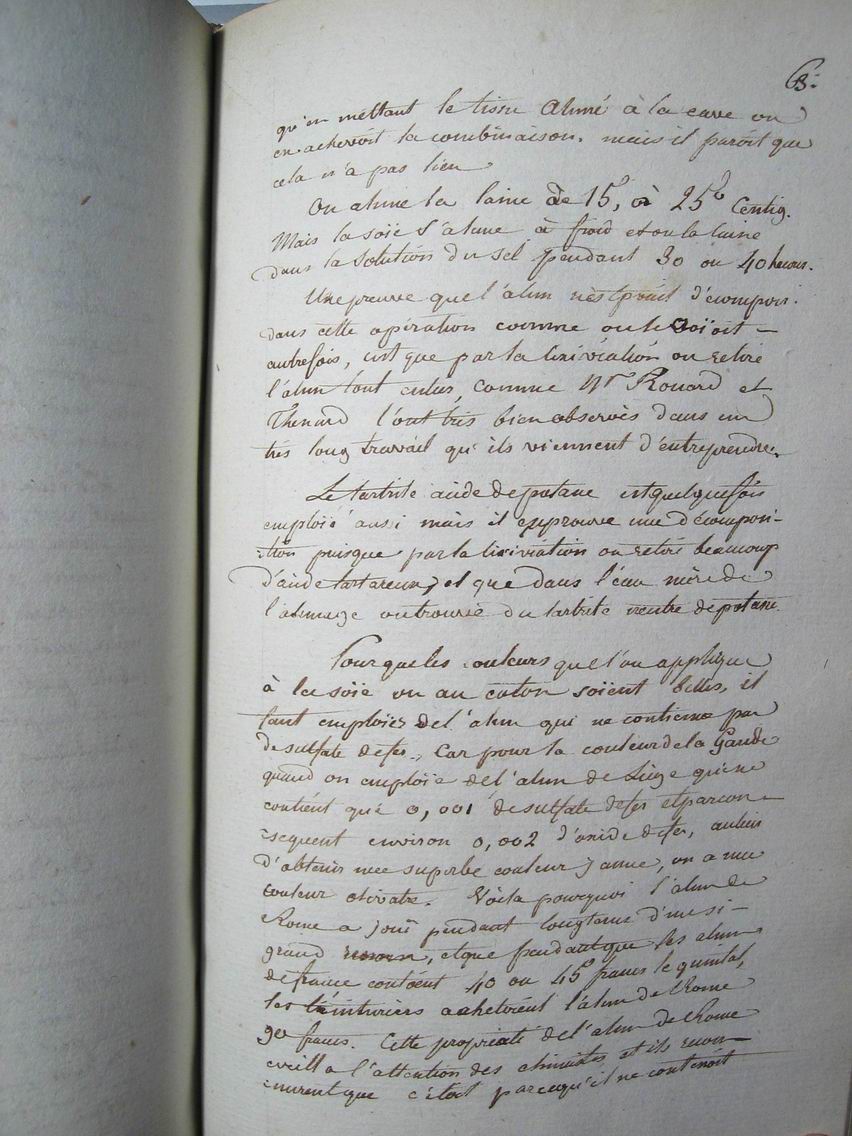 63.
qu'en mettant le tissu aluné à la cuve on
en achevoit la combinaison. mais il paroit que
cela n'a pas lieu
On alune la laine de 15°, à 25° Centig.
Mais la soïe s'alune à froid et on la laisse
dans la solution du sel pendant 30 ou 40 heures.
Une preuve que l'alun n'est point décompos.
dans cette opération comme on le
autrefois, c'est que par la lixiviation on retire
l'alun tout entier, comme Mr Roüard et
Thenard l'ont très bien observés dans un
très long travail qu'ils viennent d'entreprendre.
Le tartrite acide de potasse est quelquefois
emploïé aussi mais il epprouve une décomposi-
-tion puisque par la lixiviation on retire beaucoup
d'acide tartareux, et que dans l'eau mère de
l'alunage on trouve du tartrite neutre de potasse
Pour que les couleurs que l'on applique
à la soïe ou au coton soïent belles, il
faut emploïer de l'alun qui ne contienne pas
de sulfate de fer, car pour la couleur de la Gaude
quand on emploïe de l'alun de Liège qui ne
contient que 0,001 de sulfate de fer et par con-
-sequent environ 0,002 d'oxide de fer, au lieu
d'obtenir une superbe couleur jaune, on a une
couleur olivatre. Voila pourquoi l'alun de
Rome a joui pendant longtems d'un si
grand renom, et que pendant que les aluns
de france coutoient 40 ou 45 francs le quintal,
les teinturiers achetoient l'alun de Rome
90 francs. Cette propriété de l'alun de Rome
éveilla l'attention des chimistes et ils recon-
-nurent que c'étoit parcequ'il ne contenoit